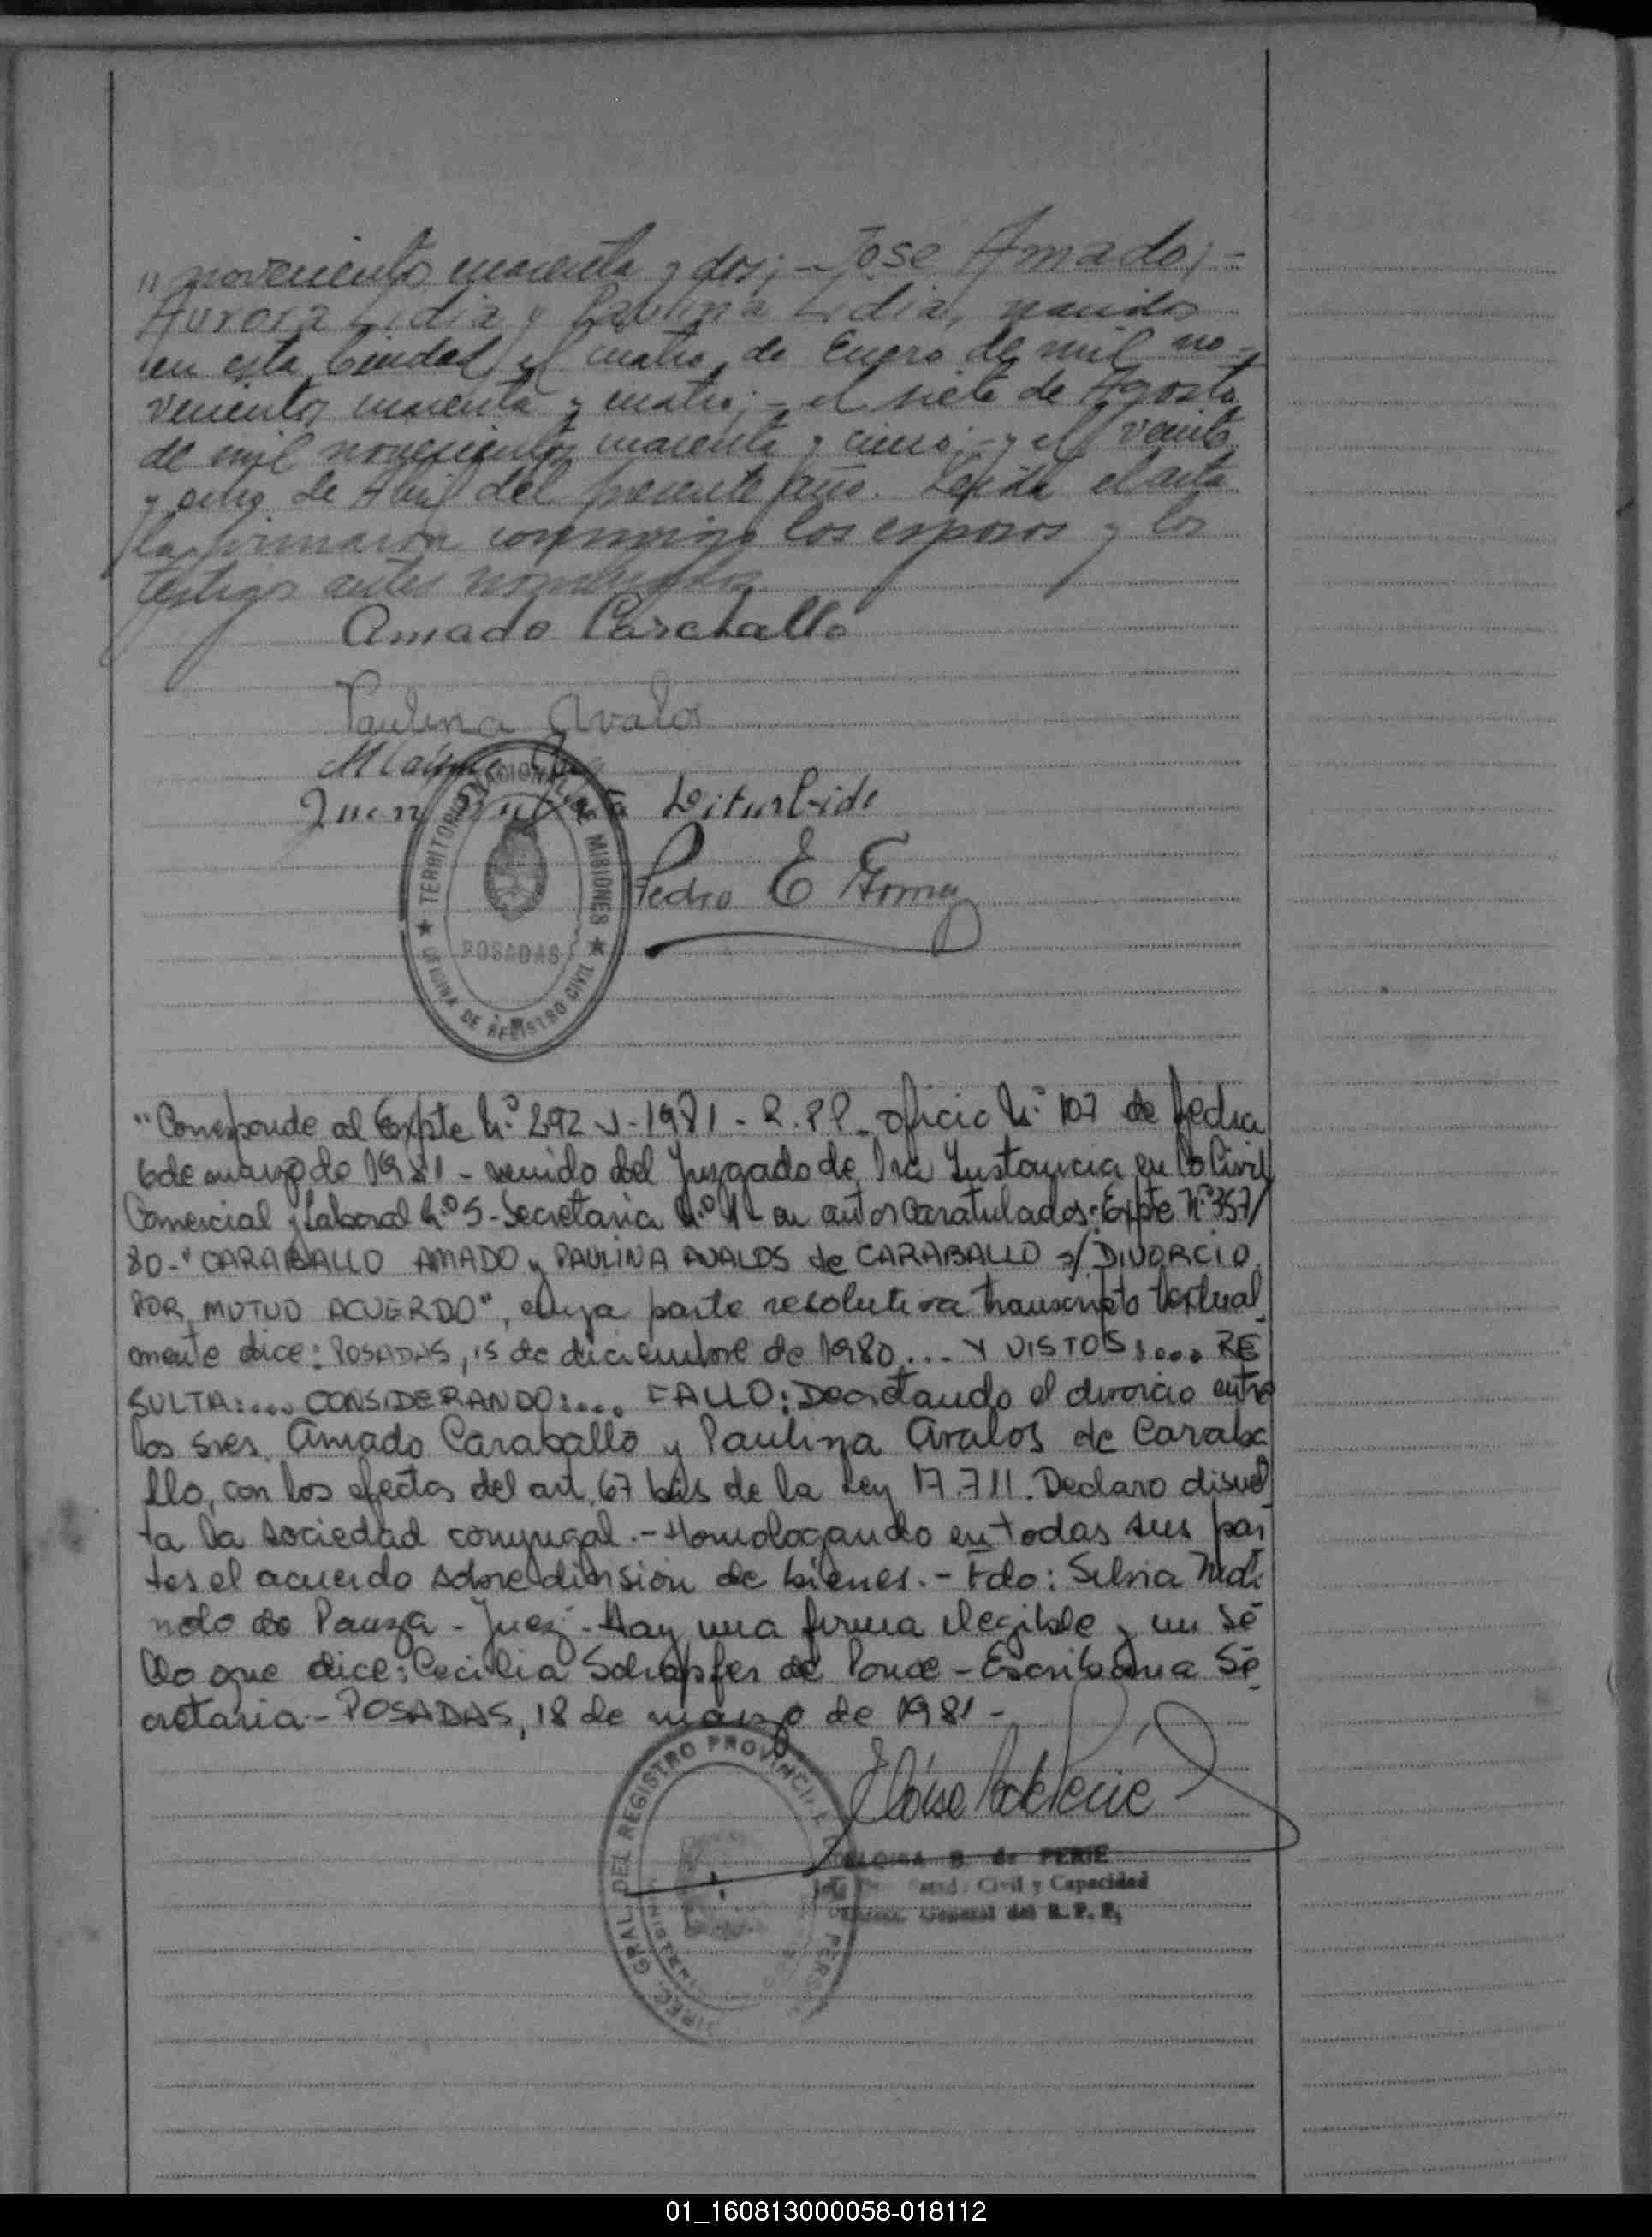 " novecientos cuarenta y dos; - José Amado; -
Aurora Lidia y Paulina Lidia, nacidos
en esta Ciudad el cuatro de Enero de mil no-
vecientos cuarenta y cuatro; - el siete de Agosto
de mil novecientos cuarenta y cinco; - y el veinte
y ocho de Abril del presente año. Leída el acta
la firmaron conmigo los esposos y los
testigos antes nombrados
Amado Caraballo
Paulina Avalos
Juan Liturbide
Pedro E
TERRITORIO NACIONAL DE MISIONES
POSADAS
OFICINA DE REGISTRO CIVIL
"Corresponde al Expte N° 292-J-1981 - R.P.P. oficio N° 107 de fecha
6 de marzo de 1981 - venido del Juzgado de 1ra Instancia en lo Civil
Comercial y Laboral N° 5 - Secretaria N° 1 - en autos caratulados: Expte N° 357/
80-"CARABALLO AMADO y PAULINA AVALOS de CARABALLO s/ DIVORCIO
POR MUTUO ACUERDO", cuya parte resolutiva transcripto textual
mente dice: POSADAS, 15 de diciembre de 1980... Y VISTOS:.... RE
SULTA:.... CONSIDERANDO:.... FALLO: Decretando el divorcio entre
los sres. Amado Caraballo y Paulina Avalos de Caraba
llo, con los efectos del art. 67 bis de la Ley 17.711. Declaro disuel
ta la sociedad conyugal.- Homologando en todas sus par
tes el acuerdo sobre división de bienes.- Fdo: Silvia
de Pauza - Juez - Hay una firma ilegible y un se
llo que dice: Cecilia de Ponce - Escribana Se
cretaria - POSADAS, 18 de marzo de 1981 -
DIREC. GRAL. DEL REGISTRO PROVINCIAL
ELOISA B. de PERIE
Civil y Capacidad
General del R. P. P.
01_160813000058-018112